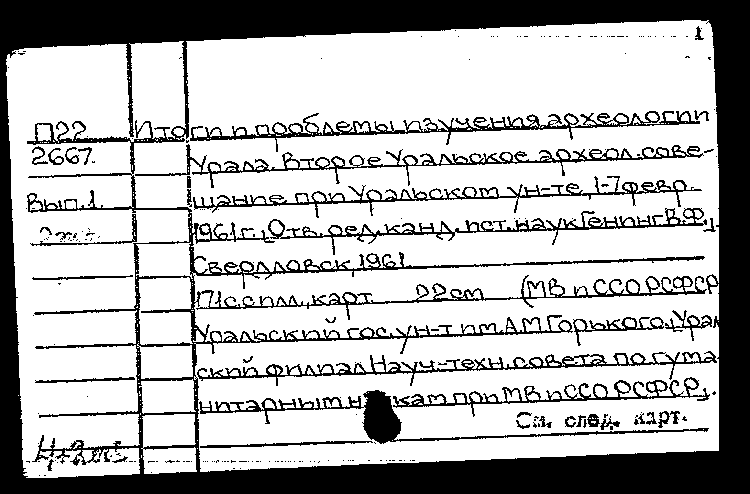 1
П22 Итоги и проблемы изучения археологии
2667. Урала. Второе Уральское археол. сове-
Вып.1. щание при Уральском ун-те, 1-7 февр.
1961 г. [Отв. ред. канд. ист. наук Генинг В.Ф.]
Свердловск, 1961
171 с. с илл., карт. 22 см (МВ и ССО РСФСР
Уральский гос. ун-т им. А.М. Горького. [Урал
ский филиал Науч.-техн. совета по гума
нитарным наукам при МВ и ССО РСФСР].
См. след. карт.